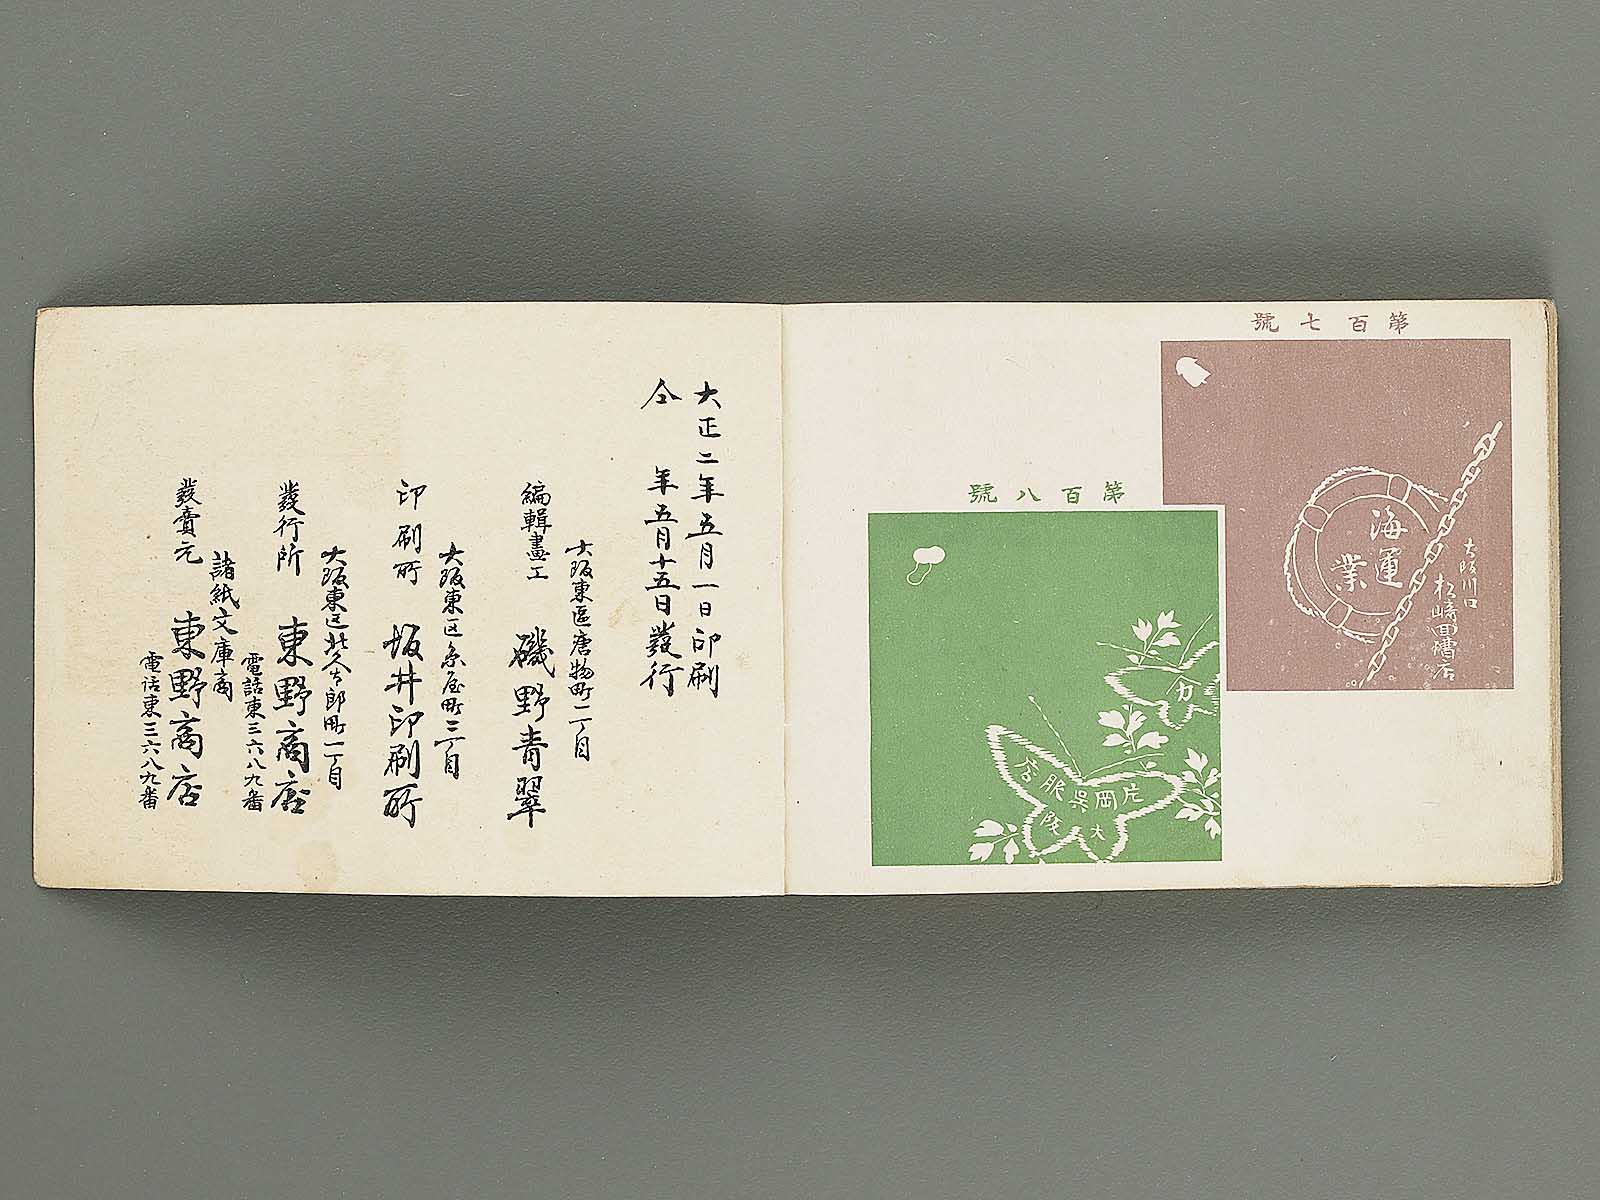 第百七號
海運業
大阪川口
松崎回漕店
第百八號
片岡呉服店
大阪
カ
大正二年五月一日印刷
仝年五月十五日發行
大阪東區唐物町二丁目
編輯畫工 磯野青翠
大阪東区糸屋町三丁目
印刷所 坂井印刷所
大阪東区北久太郎町一丁目
發行所 東野商店
電話東三六八九番
諸紙文庫商
發賣元 東野商店
電话東三六八九番